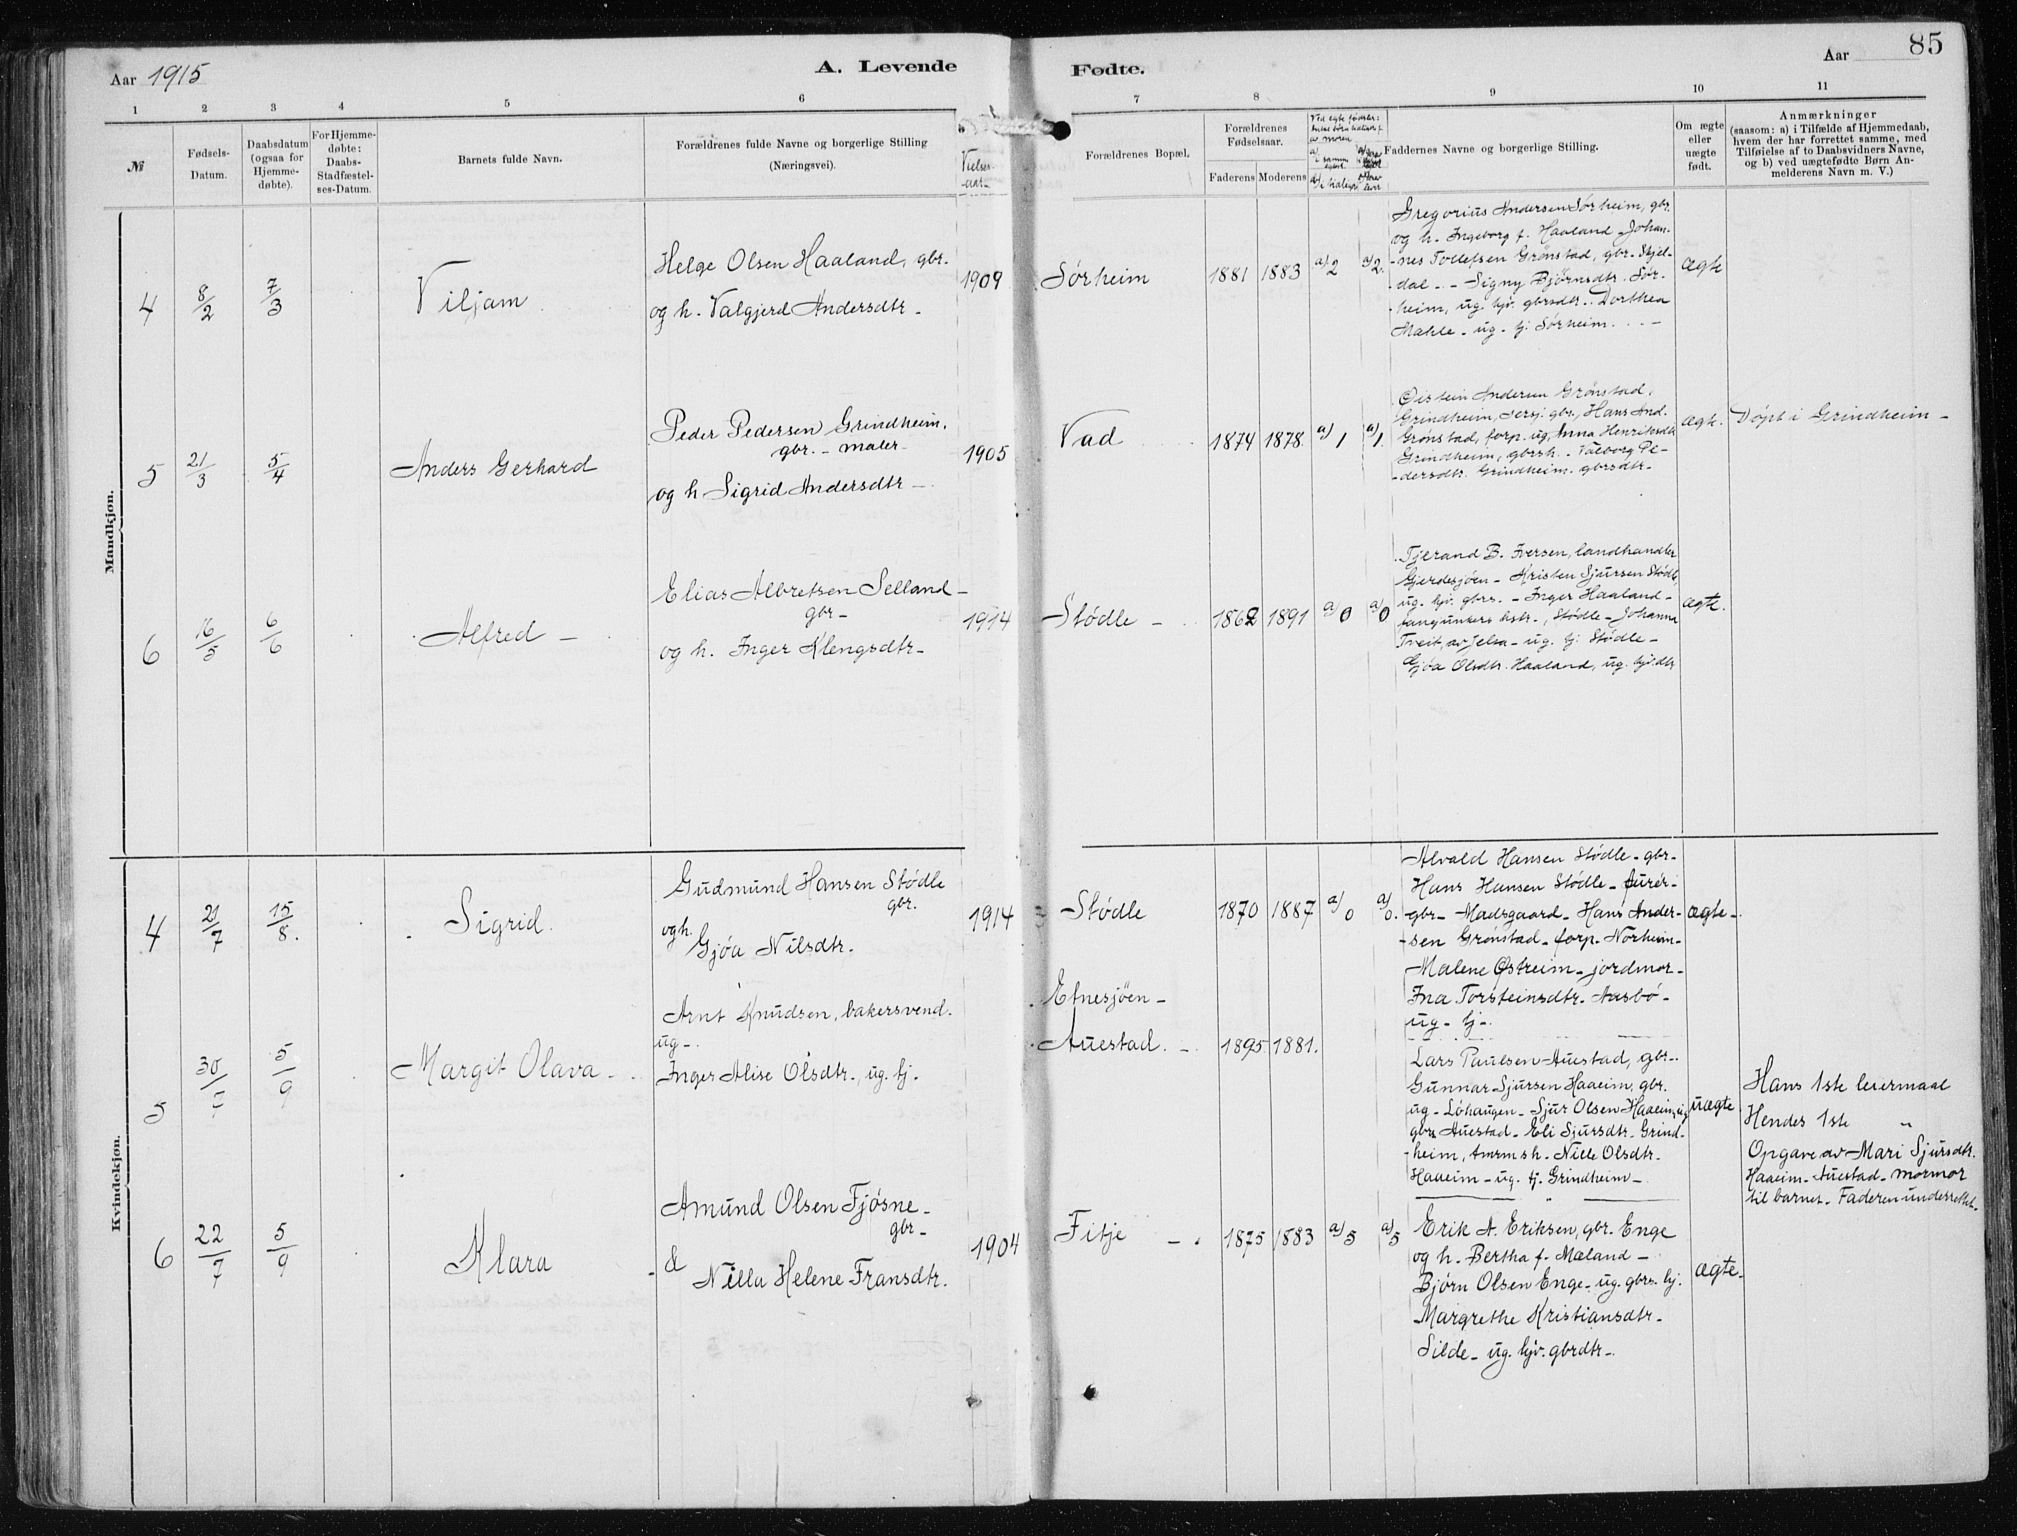 Aar 1915
A. Levende
Fødte.
Aar
85
1 2 3 4 5 6 7 8 9 10 11
№
Fødsels-
Datum.
Daabsdatum
(ogsaa for
Hjemme-
døbte).
For Hjemme-
døbte:
Daabs-
Stadfæstel-
ses-Datum.
Barnets fulde Navn.
Forældrenes fulde Navne og borgerlige Stilling
(Næringsvei).
Vielses-
aar
Forældrenes Bopæl.
Forældrenes
Fødselsaar.
Faderens Moderens
Ved egte fødsler:
Faddernes Navne og borgerlige Stilling.
Om ægte
eller
uægte
født.
Anmærkninger
(saasom: a) i Tilfælde af Hjemmedaab,
hvem der har forrettet samme, med
Tilføielse af to Daabsvidners Navne,
og b) ved uægtefødte Børn An-
melderens Navn m. V.)
Mandkjøn.
4
8/2
7/3
Viljam
Helge Olsen Haaland, gbr.
og h. Valgjerd Andersdtr.
1909
Sørheim
1881 1883 a/2 a/2.
Gregorius Andersen Sørheim, gbr.
og h. Ingeborg f. Haaland - Johan-
nes Tollefsen Grønstad, gbr. Skjel-
dal - Signy Bjørnsdtr. Sør-
heim, ug. hjv. gbrsdtr. Dorthea
Mæhle - ug. tj. Sørheim.
Ægte
5
21/3
5/4
Anders Gerhard
Peder Pedersen Grindheim,
gbr. - maler -
og h Sigrid Andersdtr -
1905
Vad
1874 1878 a/1 a/1.
Øistein Andersen Grønstad,
Grindheim, gbr., Hans And.
Grønstad, forp. ug, Anna Henriksdtr
Grindheim, gbrsh. - Valborg Pe-
dersdtr. Grindheim. gbrsdtr.
Ægte.
Døpt i Grindheim -
6
16/5
6/6
Alfred -
Elias Albretsen Selland -
gbr -
og h. Inger Klengsdtr -
1914
Stødle -
1862 1891 a/0 a/0
Tjerand B. Iversen, landhandler
Gjerdesjøen - Kristen Sjursen Stødle
ug. hjv. gbrs. - Inger Haaland -
fanejunkers hstr., Stødle - Johanna
Treit, av Jelsa - ug. tj. Stødle -
Gjøa Olsdtr. Haaland, ug. hjv. dtr
Ægte.
Kvindekjøn.
4
21/7
15/8.
Sigrid.
Gudmund Hansen Stødle
gbr.
og h.
Gjøa Nilsdtr.
1914
Stødle
1870 1887 a/0 a/0.
Alvald Hansen Stødle - gbr -
Hans Hansen Stødle -
gbr - Madsgaard - Hans Ander-
sen Grønstad - forp. Norheim -
Malene Østreim - jordmor -
Ina Torsteinsdtr. Aasbø -
ug - tj -.
Ægte -
5
30/7
5/9
Margit Olava -
Arnt Knudsen, bakersvend.
ug -.
Inger Alise Olsdtr., ug. tj.
Etnesjøen -
Auestad. -
1895 1881.
Lars Paulsen Auestad, gbr.
Gunnar Sjursen Haaeim, gbr.
ug - Løhaugen - Sjur Olsen Haaeim, ug
gbrs Auestad - Eli Sjursdtr. Grind-
heim, Amrmsh. Nille Olsdtr.
Haaeim - ug. tj. Grindheim -
uægte
Hans 1ste leiermaal
Hendes 1ste "
Opgave av Mari Sjursdtr.
Haaeim - Auestad - mormor
til barnet - Faderen underrettet.
6
22/7
5/9
Klara
Amund Olsen Fjøsne -
gbr -
&
Nilla Helene Fransdtr.
1904
Fitje -
1875 1883 a/5 a/5
Erik A. Eriksen, gbr. Enge
og h. Bertha f. Mæland -
Bjørn Olsen Enge - ug. gbrs. hj.
Margrethe Kristiansdtr -
Silde - ug. hjv. gbrdtr -.
Ægte.